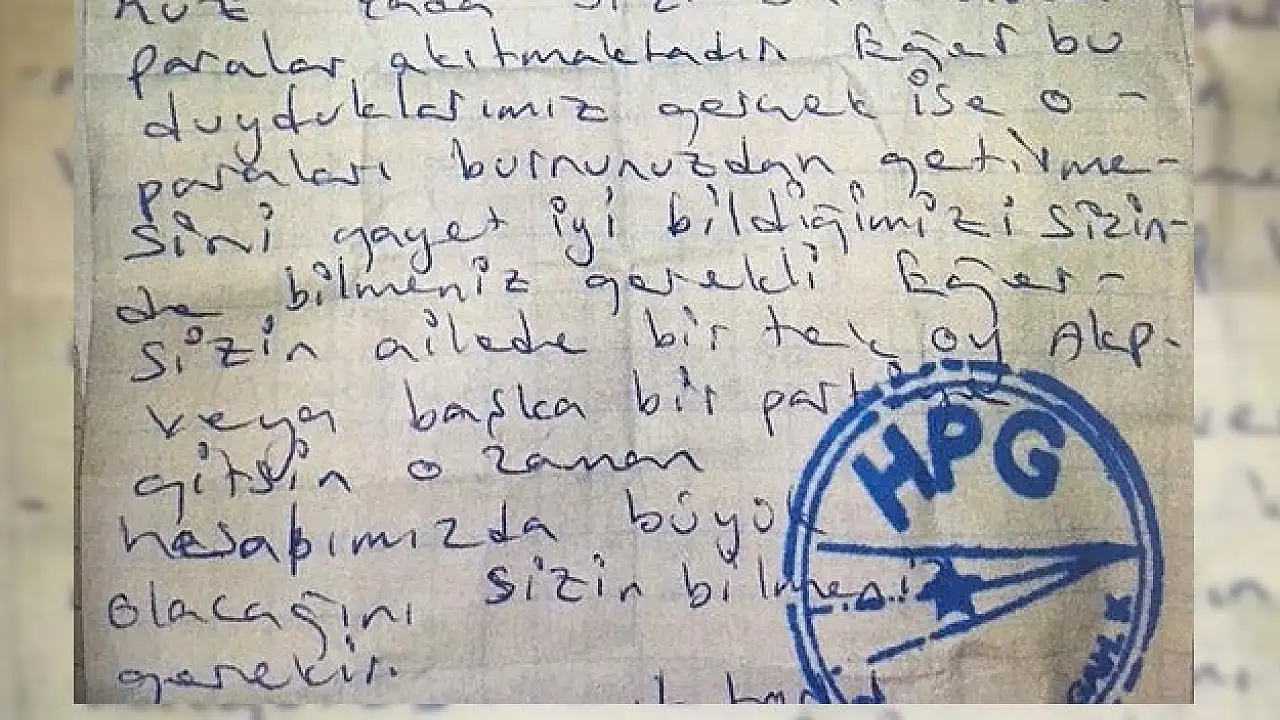 paralar akıtmaktadır Eğer bu
duyduklarımız gerçek ise o -
paraları burnunuzdan getirme-
sini gayet iyi bildiğimizi sizin-
de bilmeniz gerekli Eğer-
sizin ailede bir tek oy Akp.
veya başka bir partiye
gitsin o zaman
hesabımızda büyük
olacağını sizin bilmeniz
gerekir.
HPG